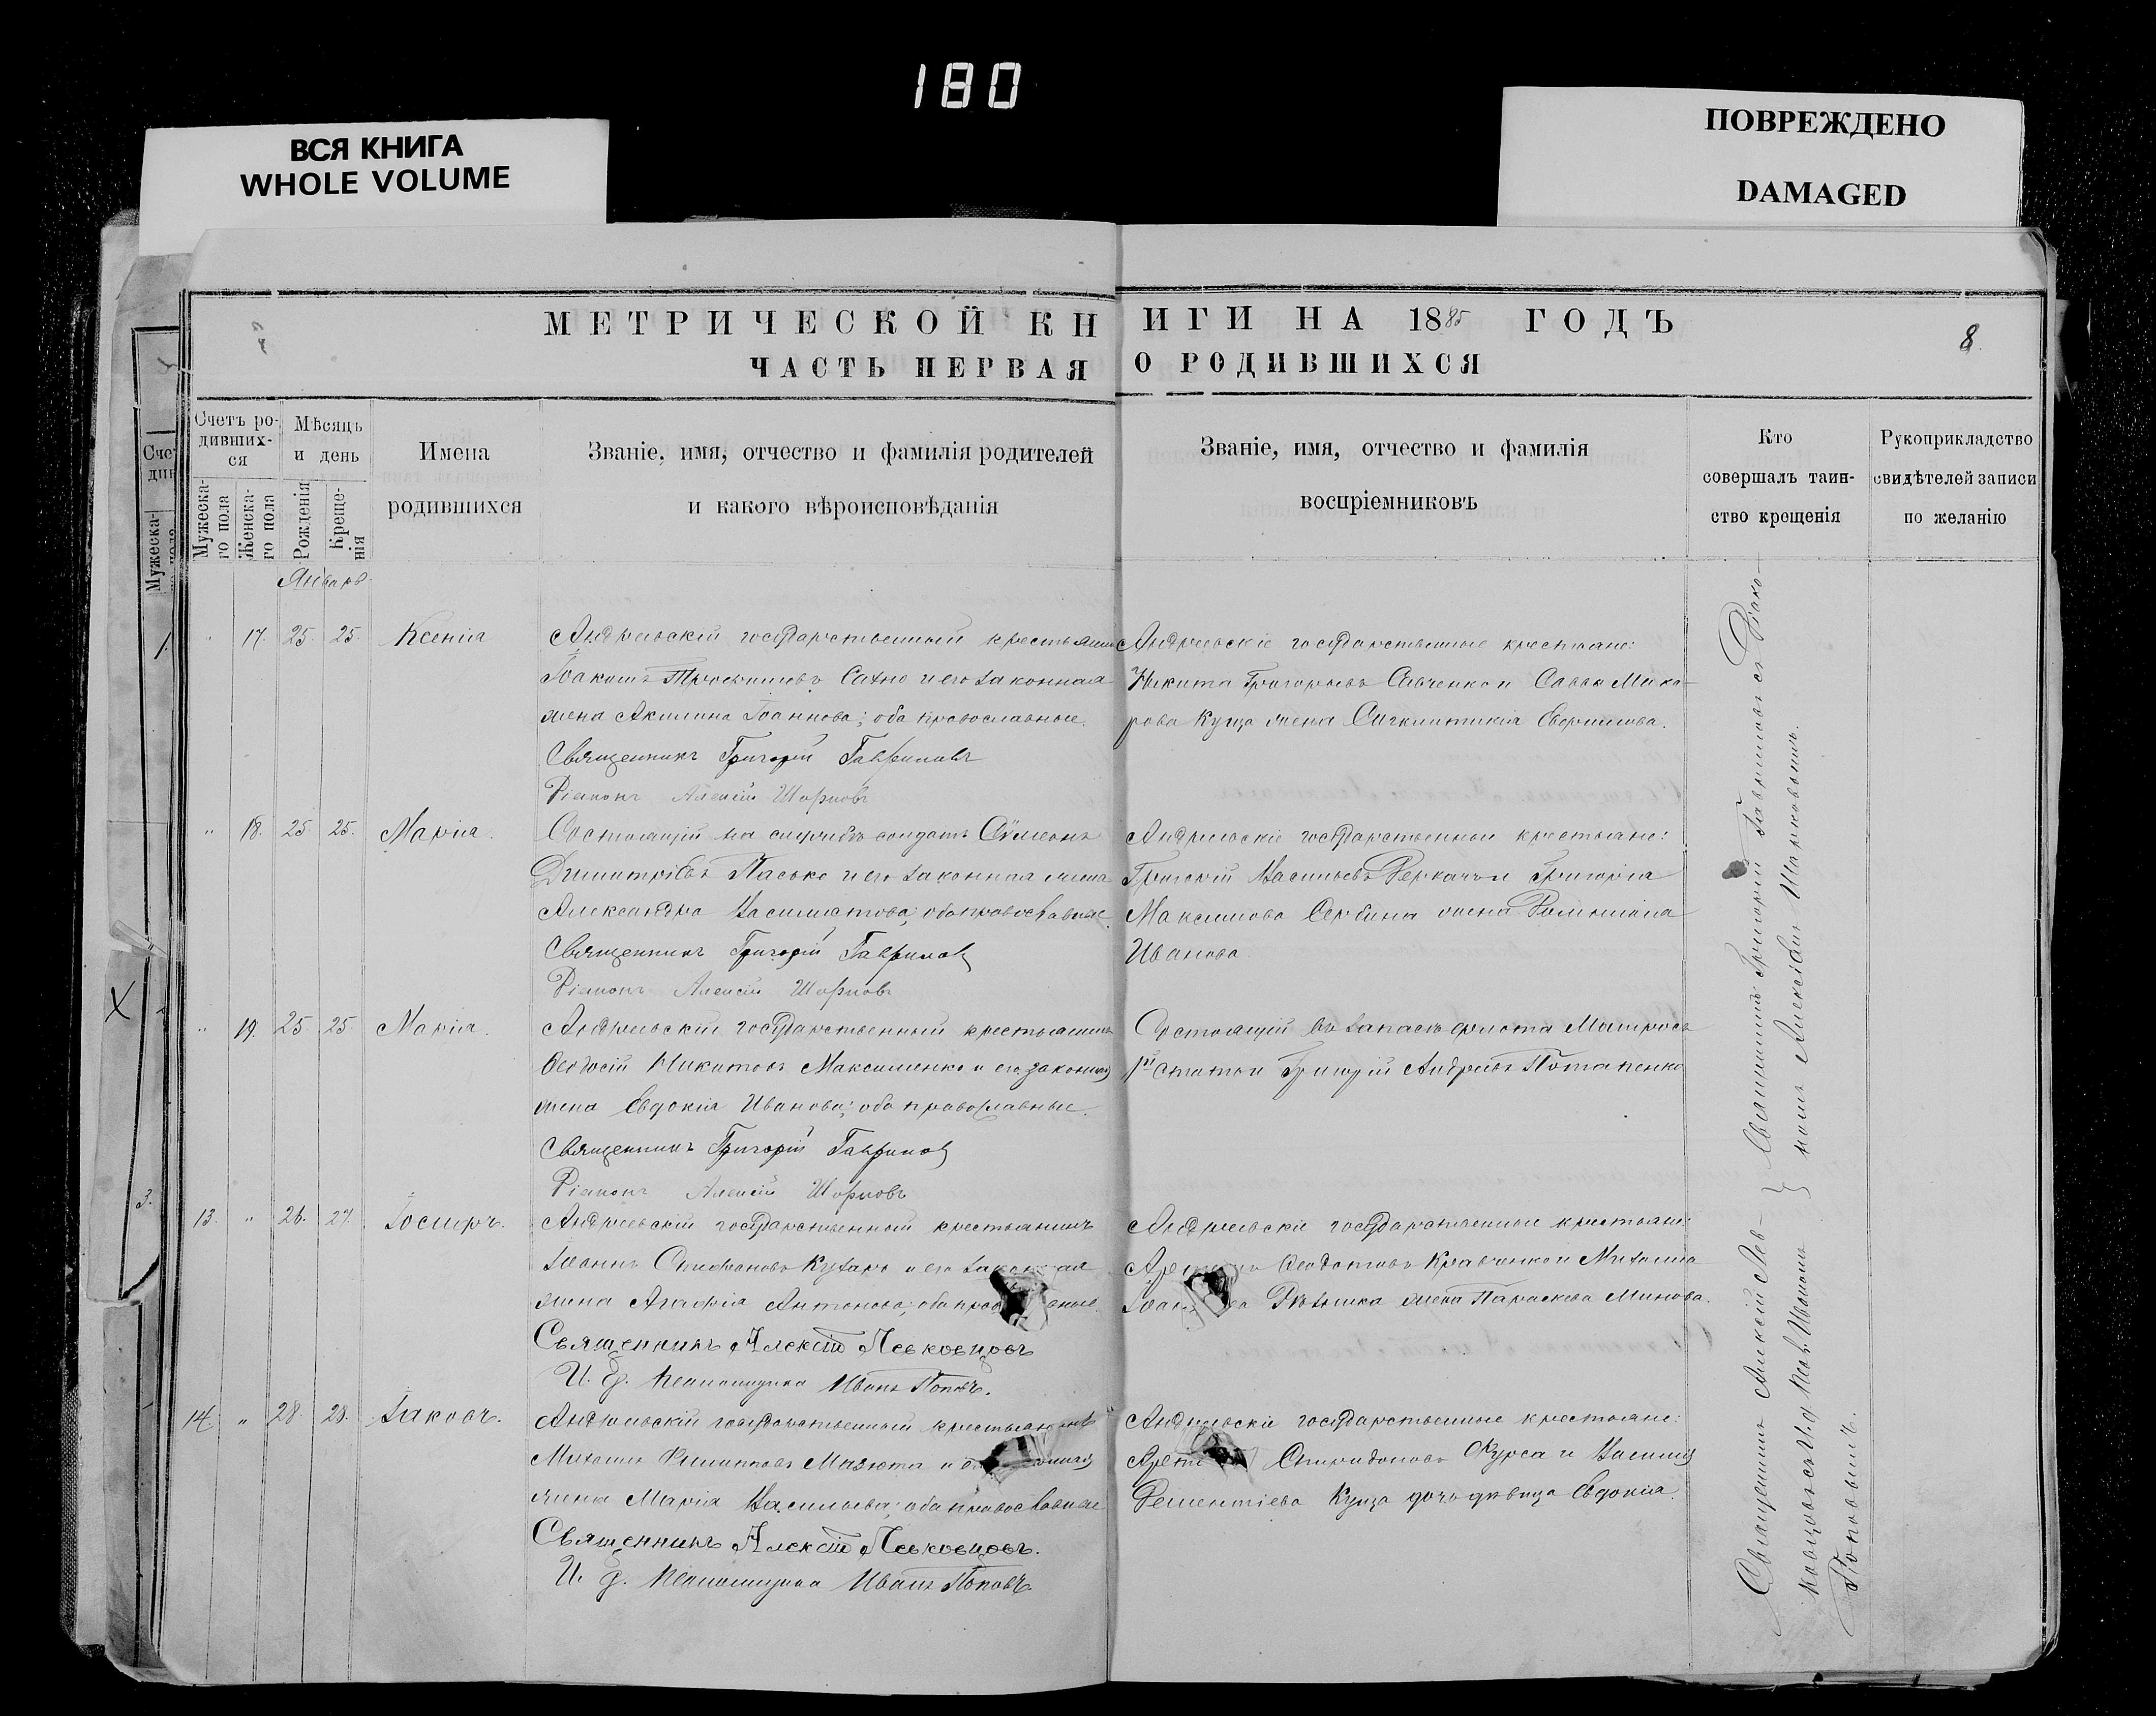 180
ВСЯ КНИГА
WHOLE VOLUME
ПОВРЕЖДЕНО
DAMAGED
МЕТРИЧЕСКОЙ КНИГИ НА 1885 ГОДЪ
8.
ЧАСТЬ ПЕРВАЯ О РОДИВШИХСЯ
Счетъ ро-
дивших-
ся
Мужеска-
го пола
Женска-
го пола
Мѣсяцъ
и день
Рожденія
Креще-
нія
Имена
родившихся
Званіе, имя, отчество и фамилія родителей
и какого вѣроисповѣданія
Званіе, имя, отчество и фамилія
воспріемниковъ
Кто
совершалъ таин-
ство крещенія
Рукоприкладство
свидѣтелей записи
по желанію
Январь
" 17. 25. 25. Ксенія
Андреевскій государственный крестьянинъ
Іоакимъ Трофимовъ Сахно и его законная
жена Акилина Іоаннова; оба православные.
Священникъ Григорій Гавриловъ
Діаконъ Алексій Шарковъ
Андреевскіе государственные крестьяне:
Никита Григорьевъ Савченко и Саввы Мака-
рова Куща жена Сигклитикія Ефримова.
" 18. 25. 25. Марія.
Состоящій на службѣ солдатъ Сѵмеонъ
Димитріевъ Пасько и его законная жена
Александра Каллистова; оба православные.
Священникъ Григорій Гавриловъ
Діаконъ Алексій Шарковъ
Андреевскіе государственные крестьяне:
Григорій Васильевъ Деркачъ и Григорія
Максимова Сербина жена
Иванова.
" 19. 25. 25. Марія.
Андреевскій государственный крестьянинъ
Ѳеодосій Никитовъ Максименко и его законная
жена Евдокія Иванова; оба православные.
Священникъ Григорій Гавриловъ
Діаконъ Алексій Шарковъ
Состоящій въ запасѣ флота Матросъ
1й статьи Григорій Андреевъ Потапенко
13. " 26. 27. Іосифъ.
Андреевскій государственный крестьянинъ
Іоаннъ Стефановъ Кухарь и его законная
жена Агафія Антонова; оба
Священникъ Алексій Левковцовъ
И. д. Псаломщика Иванъ Поповъ.
Андреевскіе государственные крестьяне:
Ѳеодотовъ Кравченко и Михаила
жена Параскева Минова.
14. " 28. 28. Іаковъ.
Андреевскій государственный крестьянинъ
Михаилъ Филипповъ Мазюта и
жена Марія Васильева; оба православные
Священникъ Алексій Левковцовъ.
И. д. Псаломщика Иванъ Поповъ.
Андреевскіе государственные крестьяне:
Спиридоновъ Курса и
Дементіева Куща дочь дѣвица Евдокія.
Священникъ Григорій Гавриловъ съ Діако-
номъ Алексіемъ Шарковымъ.
Священникъ Алексій Лев-
ковцовъ съ И. д. Псал. Иваномъ
Поповымъ.